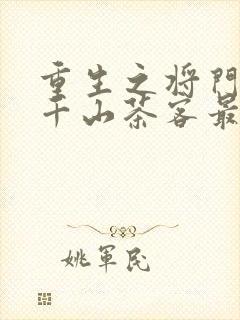 重生之将门
千山茶客最
姚军民